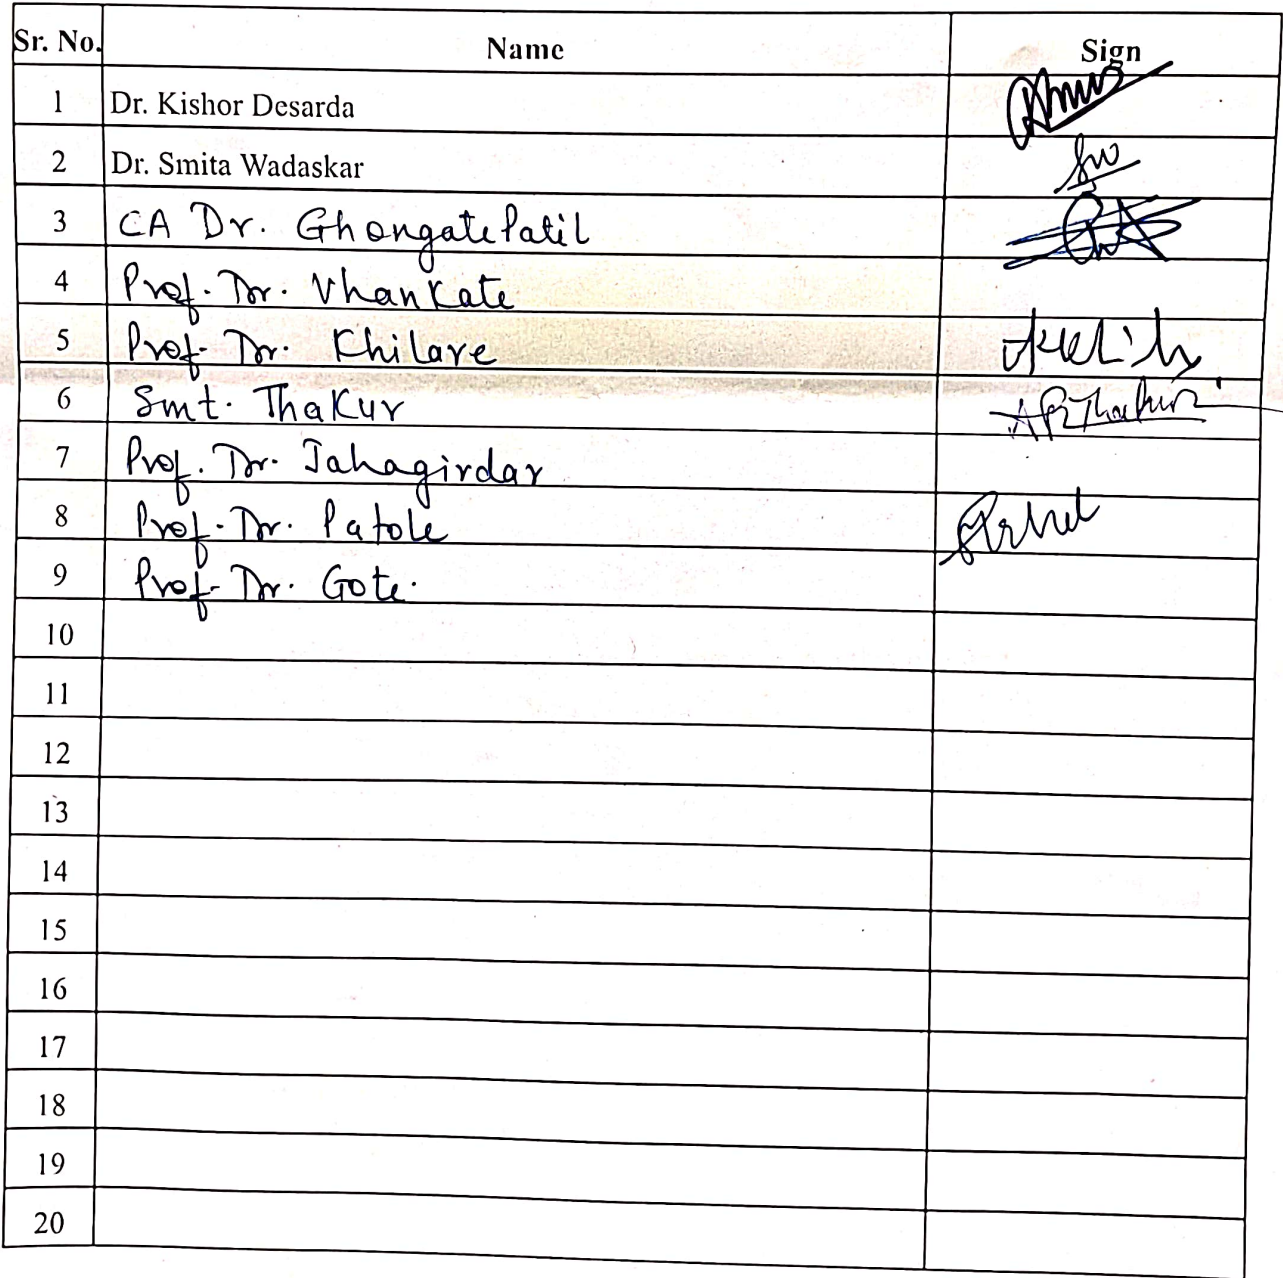 Sr. No. Name Sign
1 Dr. Kishor Desarda
2 Dr. Smita Wadaskar
3 CA Dr. Ghongate Patil
4 Prof. Dr. Vhankate
5 Prof. Dr. Khilare
6 Smt. Thakur APThakur
7 Prof. Dr. Jahagirdar
8 Prof. Dr. Patole
9 Prof. Dr. Gote.
10
11
12
13
14
15
16
17
18
19
20